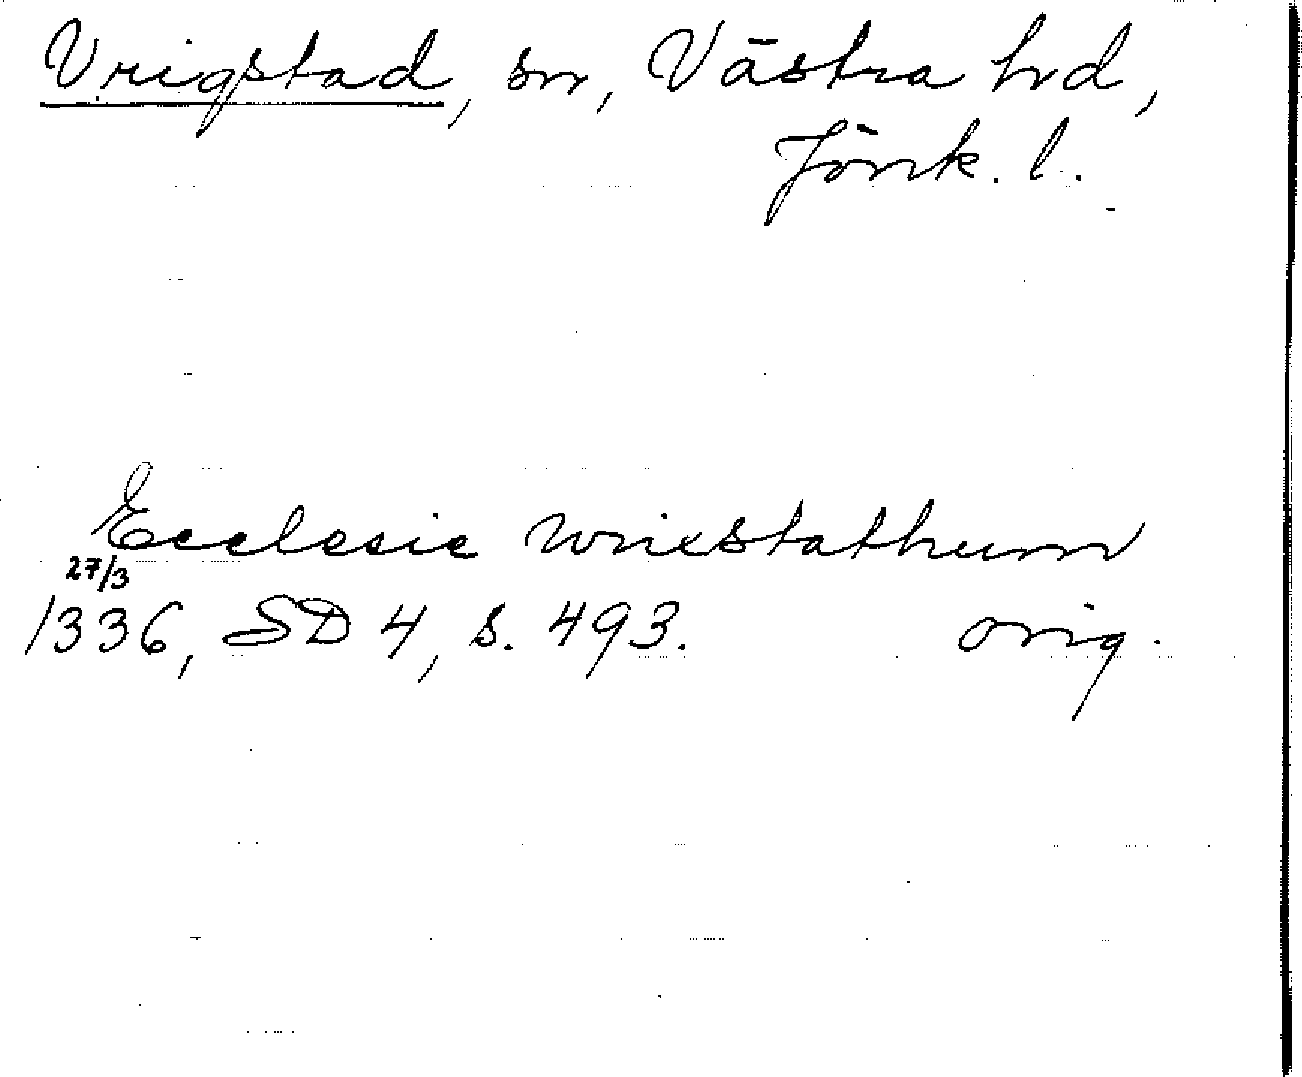 Vrigstad, sn, Västra hd,
Jönk. l.
Ecclesie wrixstathum
27/3
1336, SD 4, s. 493. orig.